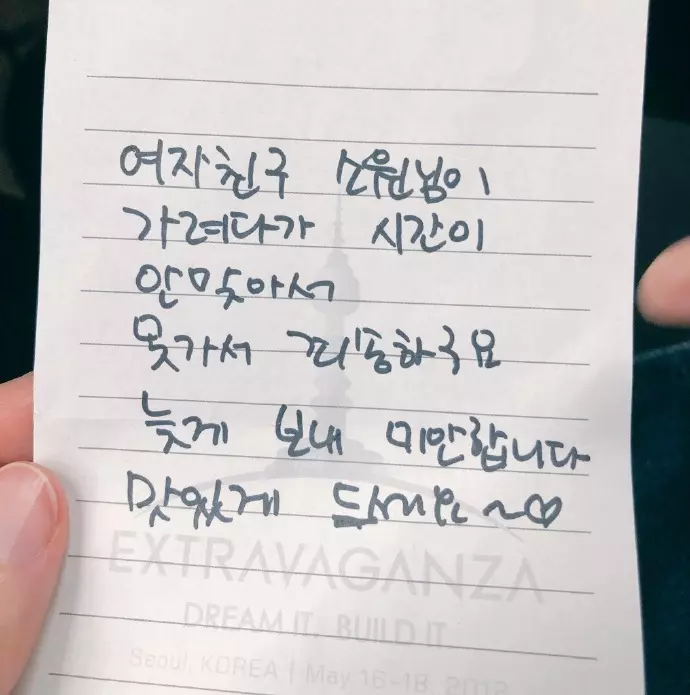 여자친구 소원님이
가려다가 시간이
안맞아서
못가서 죄송하구요
늦게 보내 미안합니다
맛있게 드세요~♡
EXTRAVAGANZA
DREAM IT, BUILD IT
Seoul, KOREA | May 16-18, 2012